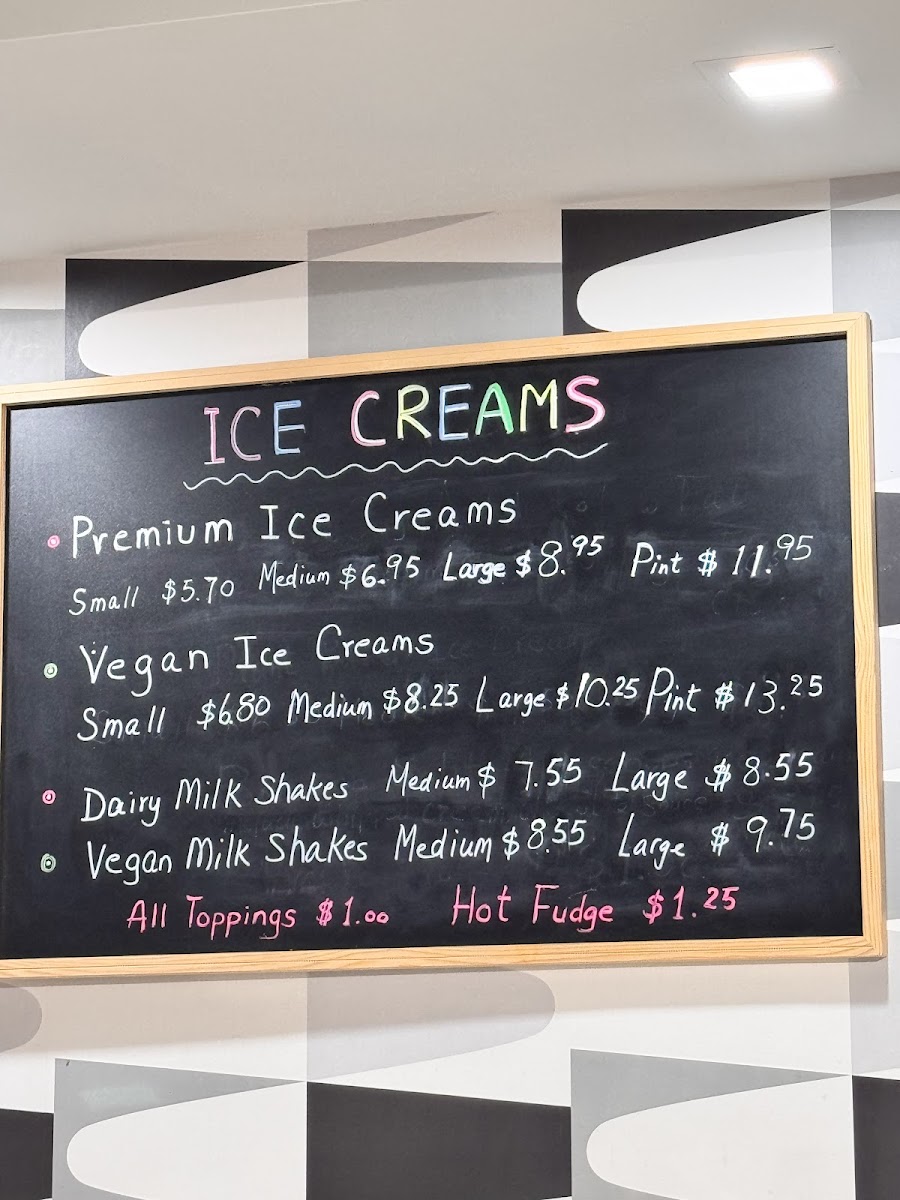 ICE CREAMS
Premium Ice Creams
Small $5.70 Medium $6.95 Large $8.95 Pint $11.95
Vegan Ice Creams
Small $6.80 Medium $8.25 Large $10.25 Pint $13.25
Dairy Milk Shakes Medium $7.55 Large $8.55
Vegan Milk Shakes Medium $8.55 Large $9.75
All Toppings $1.00 Hot Fudge $1.25